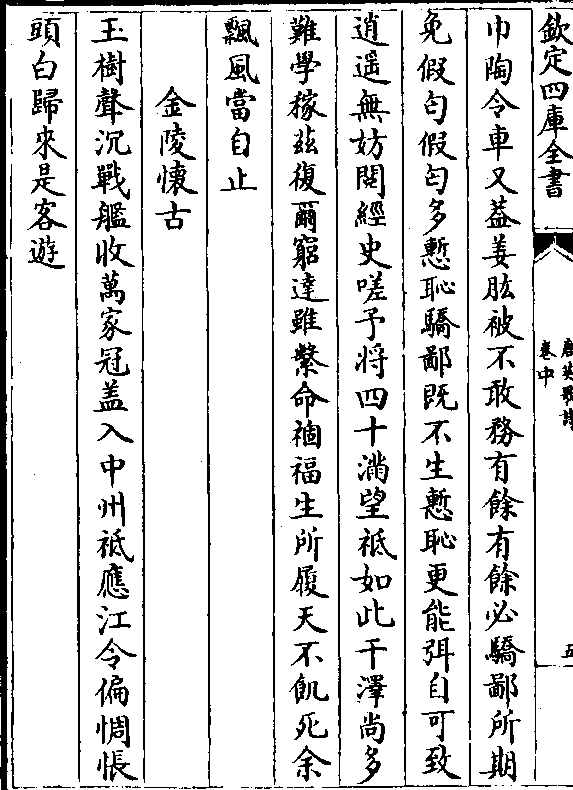 欽定四庫全書
唐英歌詩
卷中
五
巾陶令車又葢姜肱被不敢務有餘有餘必驕鄙所期
免假匄假匄多慙恥驕鄙既不生慙恥更能弭自可致
逍遥無妨閱經史嗟予將四十滿望祇如此干澤尚多
難學稼兹復爾窮達雖繫命禍福生所履天不飢死余
飄風當自止
金陵懷古
玉樹聲沉戰艦收萬家冠盖入中州祇應江令偏惆悵
頭白歸來是客遊